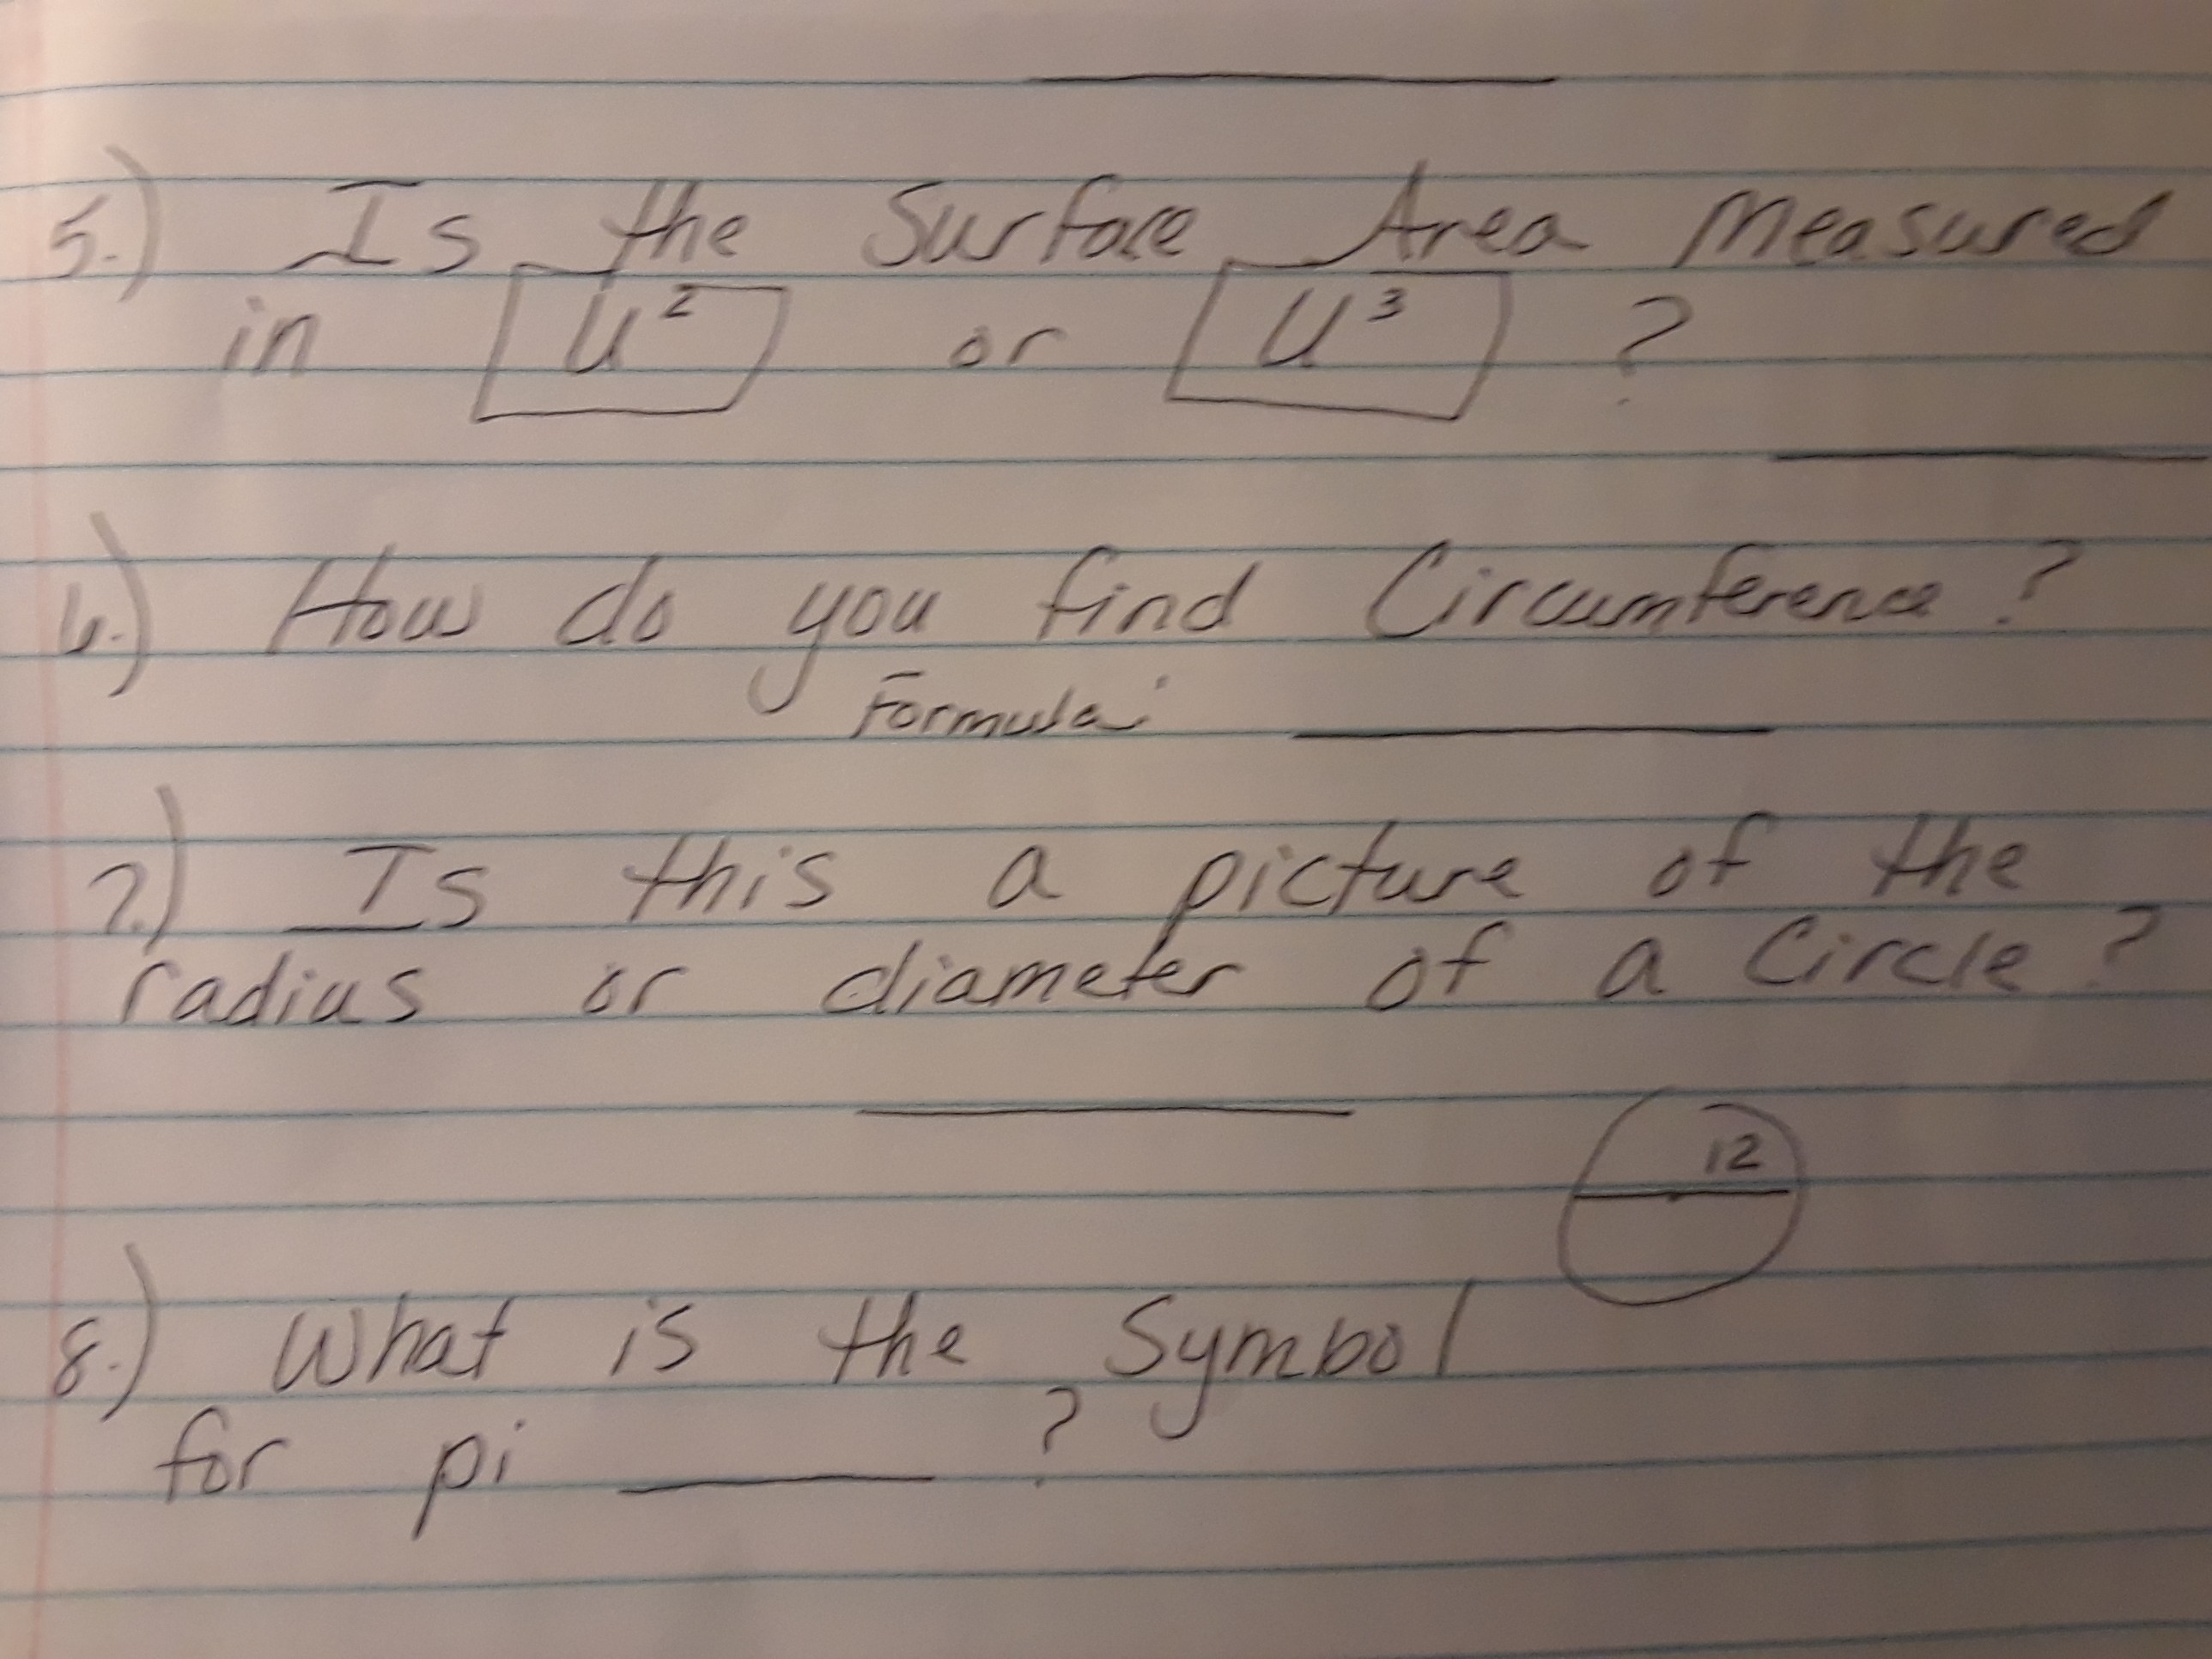 5.) Is the Surface Area Measured
in U² or U³ ?
6.) How do you find Circumference?
Formula:
7.) Is this a picture of the
radius or diameter of a Circle?
12
8.) What is the Symbol
for pi ?